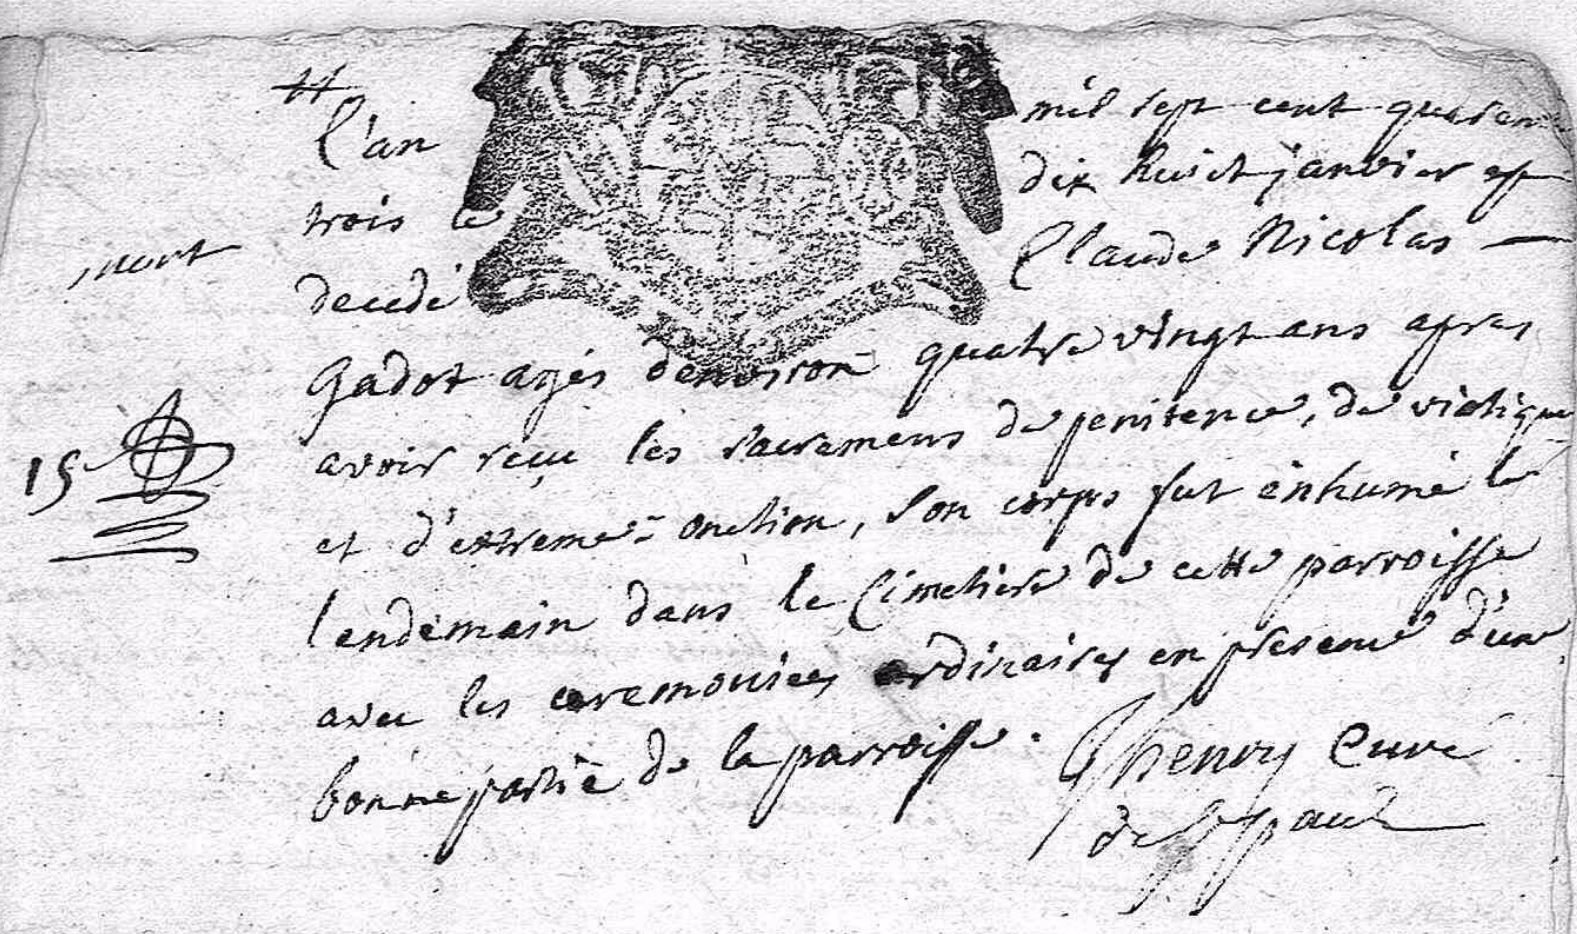 l'an mil sept cent quaran
mort
trois le dix huict janvier est
decedé Claude Nicolas
Gadot agés d'environ quatre vingt ans apres
15
avoir reçu les sacremens de penitence, de viatique
et d'extreme-onction, son corps fut enhumé le
lendemain dans le Cimetiere de cette parroisse
avec les ceremonies ordinaires en presence d'une
bonne partie de la parroisse.
henry Curé
de St paul